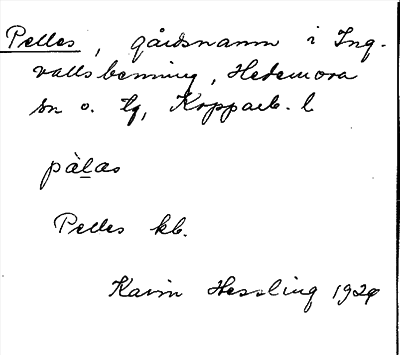 Pelles, gårdsnamn i Ing-
vallsbenning, Hedemora
sn o. tg, Kopparb. l
pàlas
Pelles kb.
Karin Hessling